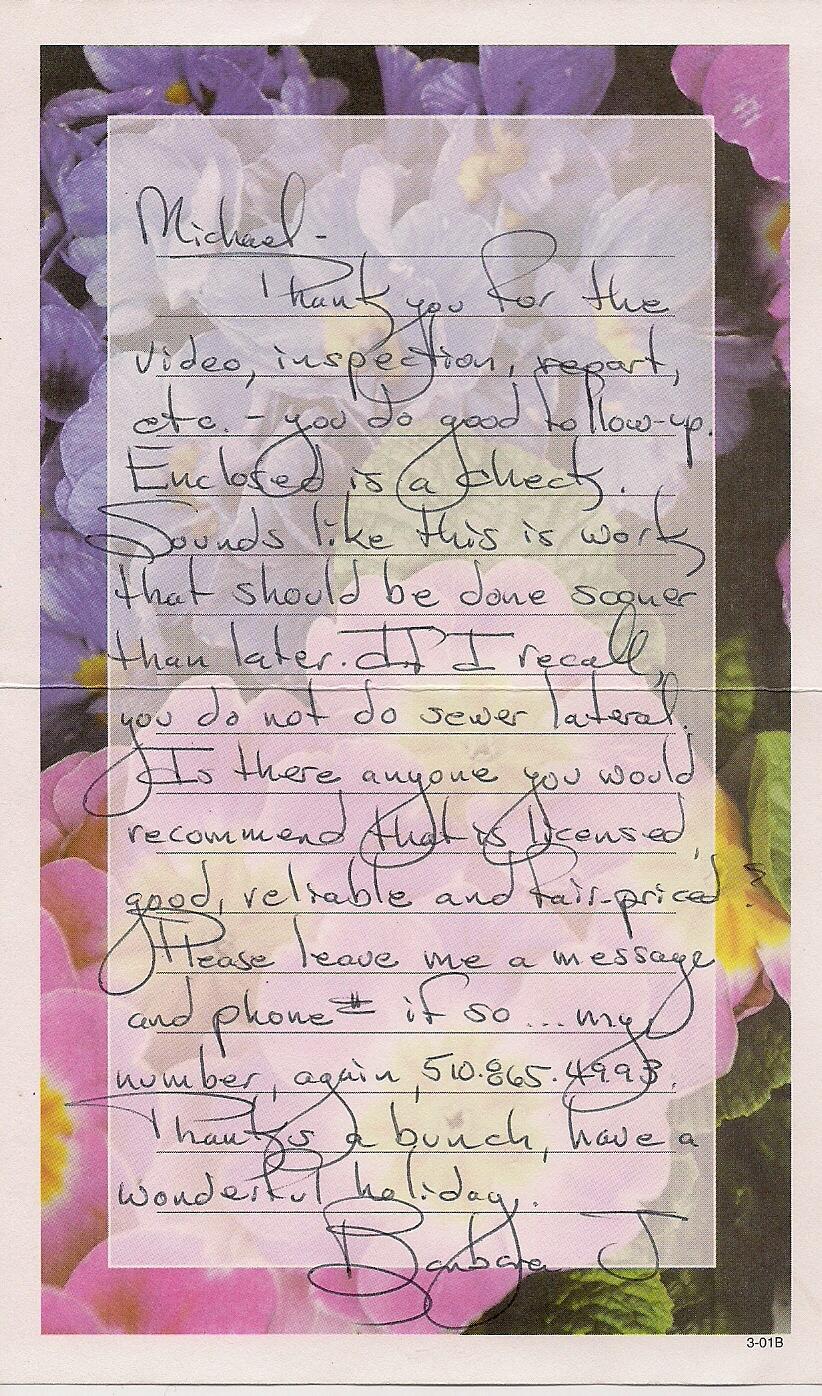 Michael -
Thank you for the
video, inspection, report,
etc. - you do good follow-up.
Enclosed is a check.
Sounds like this is work
that should be done sooner
than later. If I recall,
you do not do sewer lateral.
Is there anyone you would
recommend that is licensed,
good, reliable and fair-priced?
Please leave me a message
and phone # if so... my
number, again, 510.865.4993.
Thanks a bunch, have a
wonderful holiday.
Barbara J
3-01B